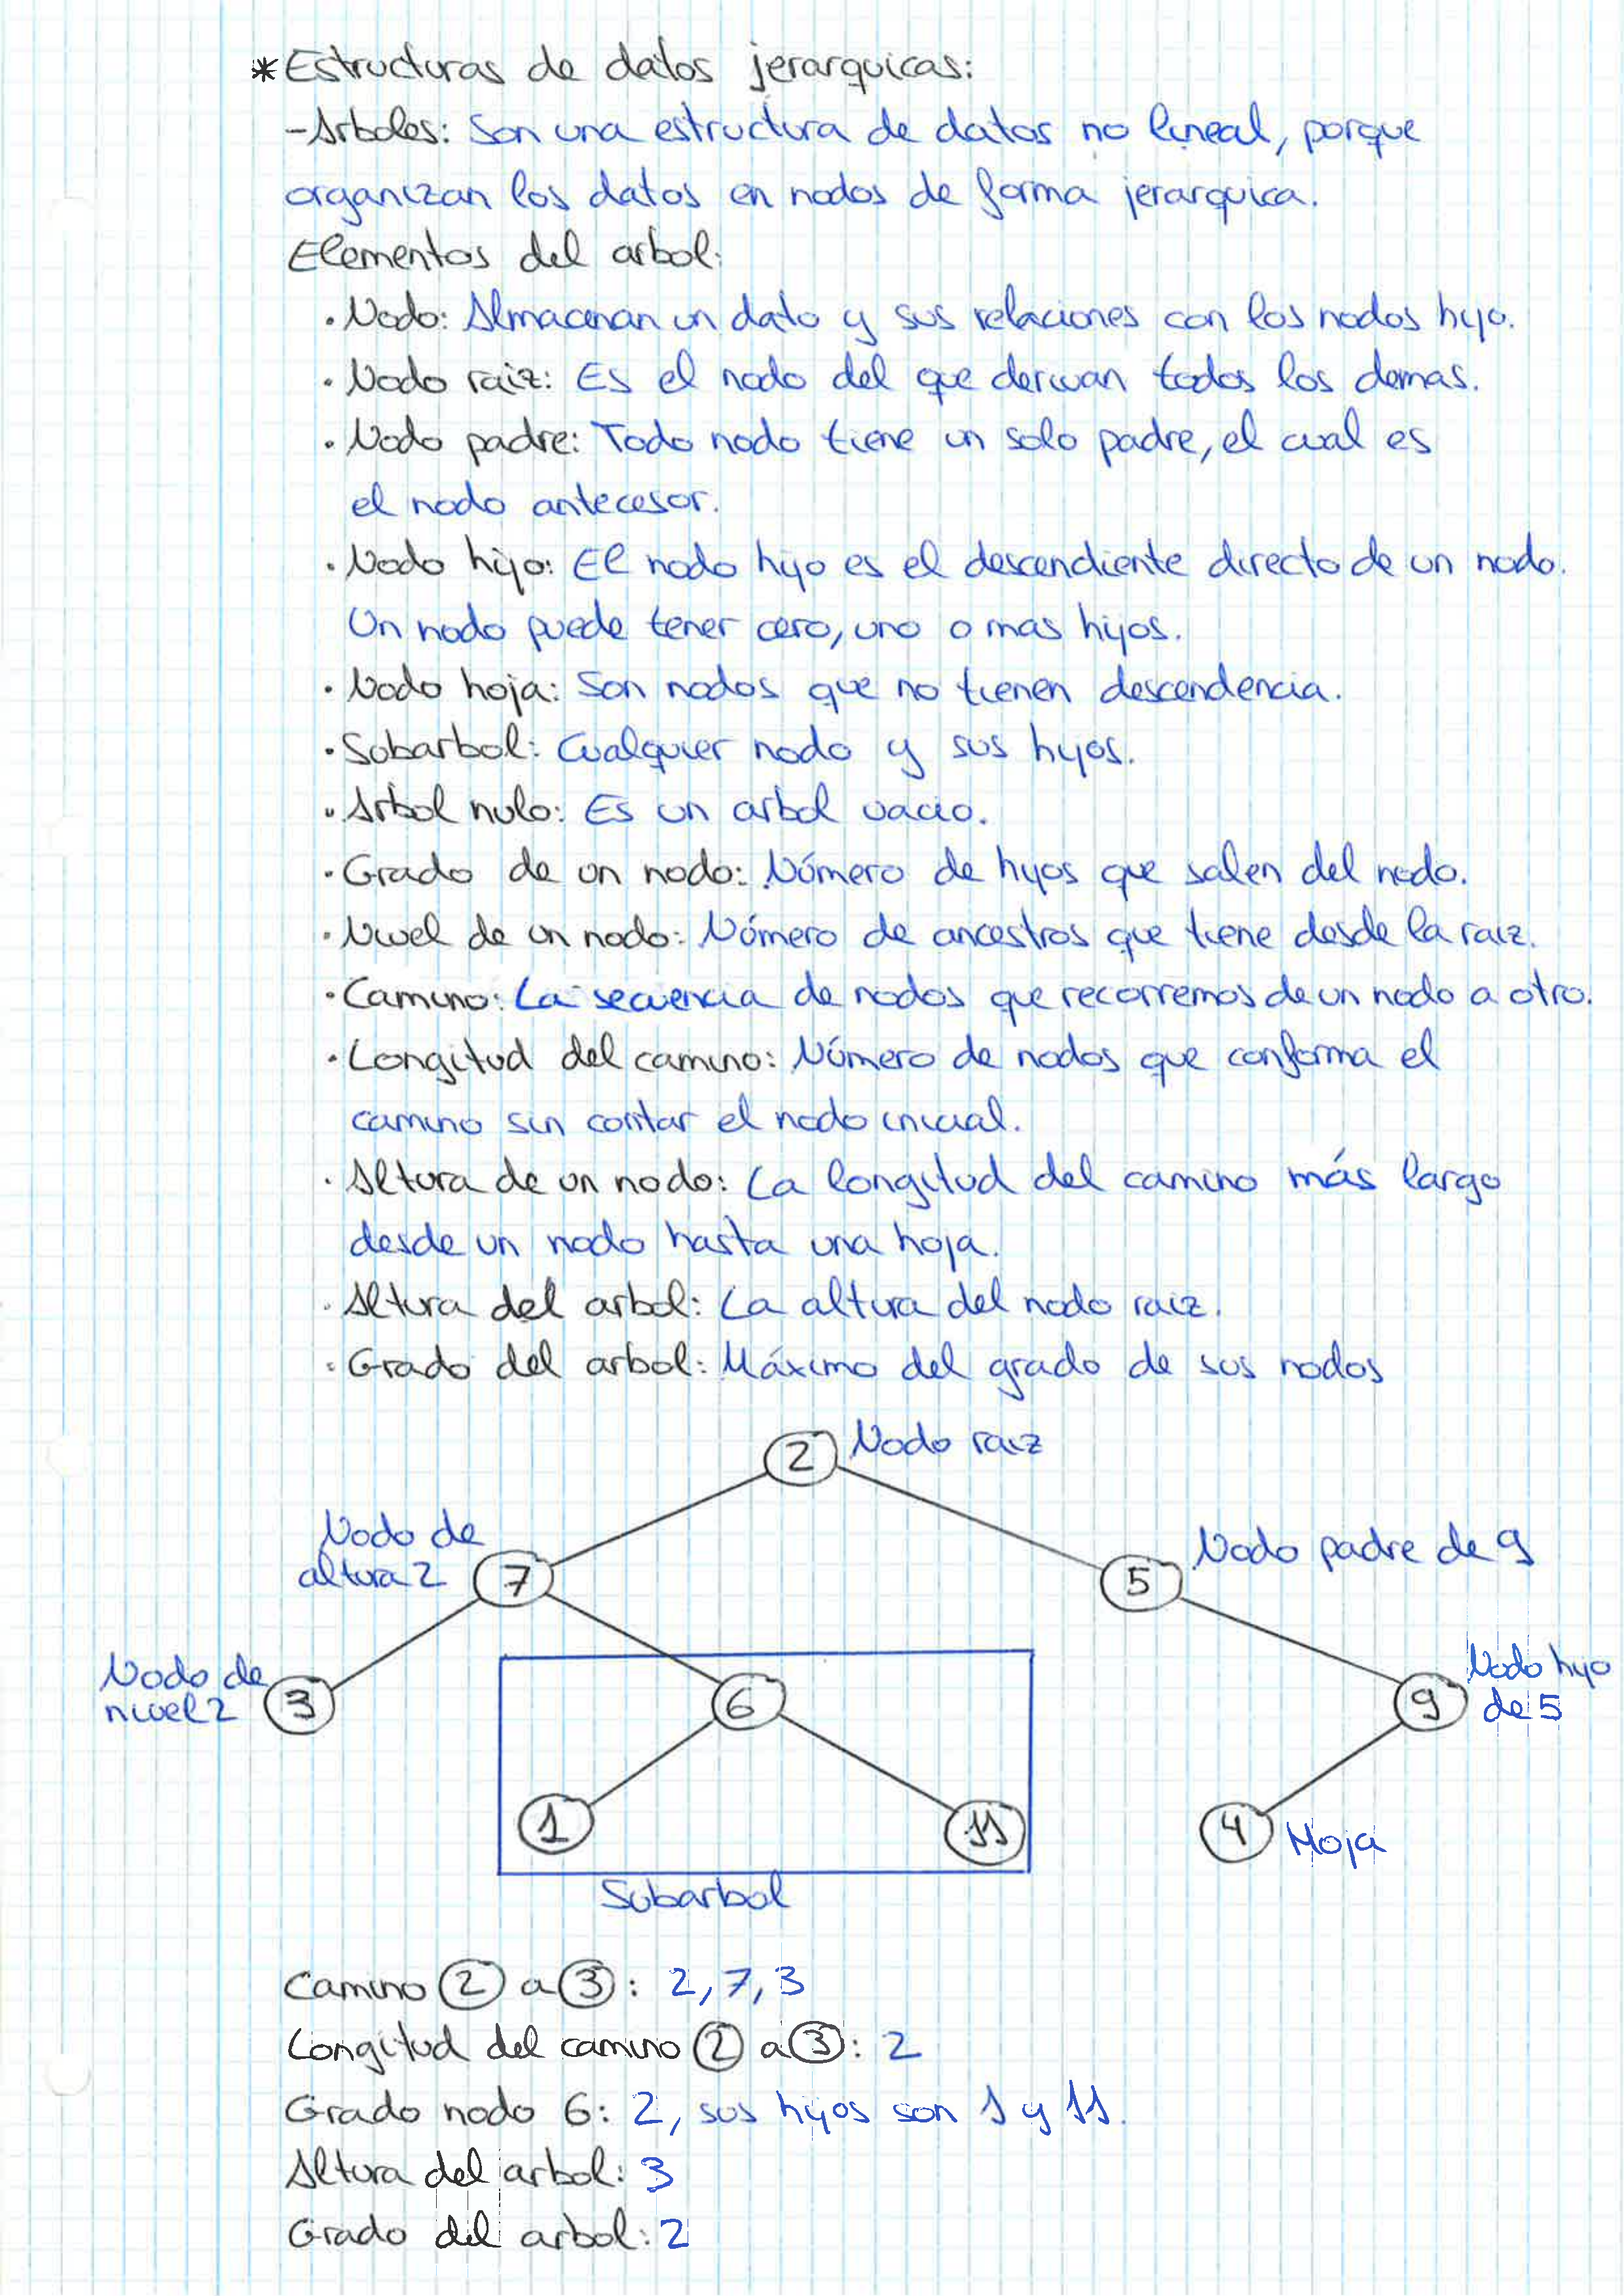 *Estructuras de datos jerarquicas:
-Arboles: Son una estructura de datos no lineal, porque
organizan los datos en nodos de forma jerarquica.
Elementos del arbol:
· Nodo: Almacenan un dato y sus relaciones con los nodos hijo.
· Nodo raiz: Es el nodo del que derivan todos los demas.
· Nodo padre: Todo nodo tiene un solo padre, el cual es
el nodo antecesor.
· Nodo hijo: El nodo hijo es el descendiente directo de un nodo.
Un nodo puede tener cero, uno o mas hijos.
· Nodo hoja: Son nodos que no tienen descendencia.
· Subarbol: Cualquier nodo y sus hijos.
· Arbol nulo: Es un arbol vacio.
· Grado de un nodo: Número de hijos que salen del nodo.
· Nivel de un nodo: Número de ancestros que tiene desde la raiz.
· Camino: La secuencia de nodos que recorremos de un nodo a otro.
· Longitud del camino: Número de nodos que conforma el
camino sin contar el nodo inicial.
· Altura de un nodo: La longitud del camino más largo
desde un nodo hasta una hoja.
· Altura del arbol: La altura del nodo raiz.
· Grado del arbol: Máximo del grado de sus nodos
2 Nodo raiz
Nodo de
altura 2 7
5 Nodo padre de 9
Nodo de
nivel 2 3
6
9 Nodo hijo
de 5
1
11
4 Hoja
Subarbol
Camino 2 a 3: 2, 7, 3
Longitud del camino 2 a 3: 2
Grado nodo 6: 2, sus hijos son 1 y 11.
Altura del arbol: 3
Grado del arbol: 2